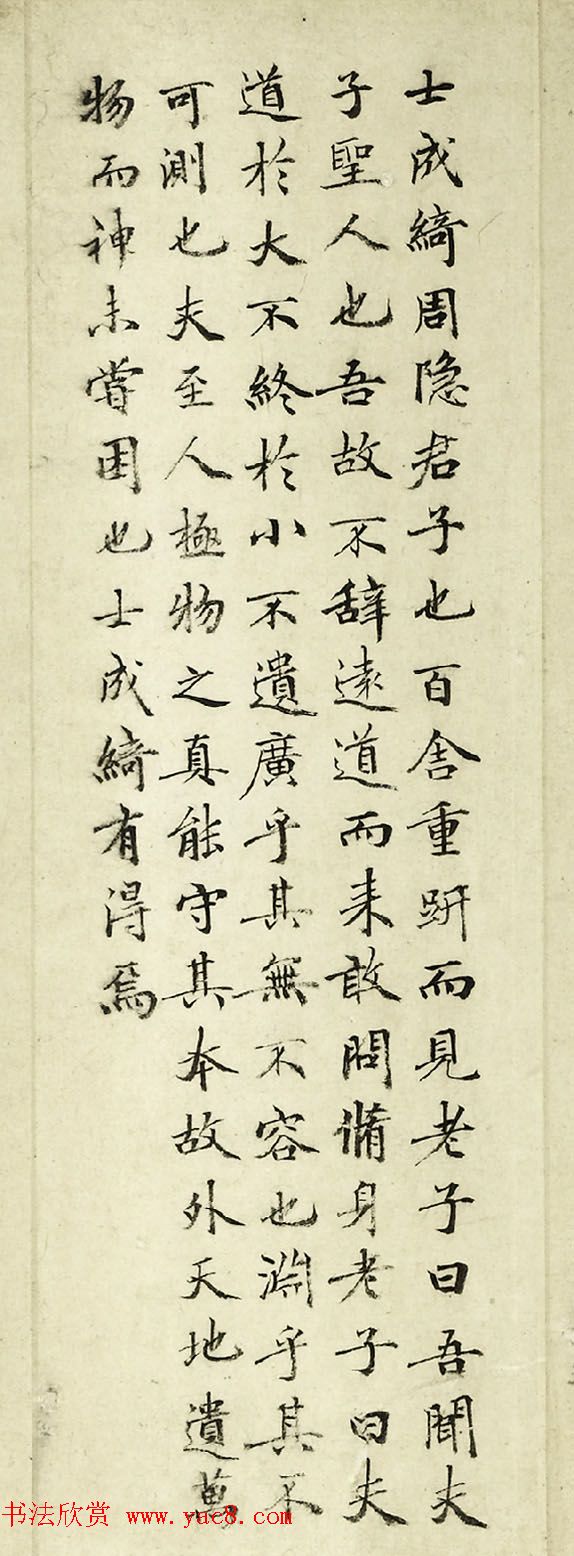 士成綺周隐君子也百舍重趼而見老子曰吾聞夫
子聖人也吾故不辞遠道而来敢問脩身老子曰夫
道於大不終於小不遺廣乎其無不容也淵乎其不
可測也夫至人極物之真能守其本故外天地遺萬
物而神未嘗困也士成綺有得焉
书法欣赏 www.yac8.com